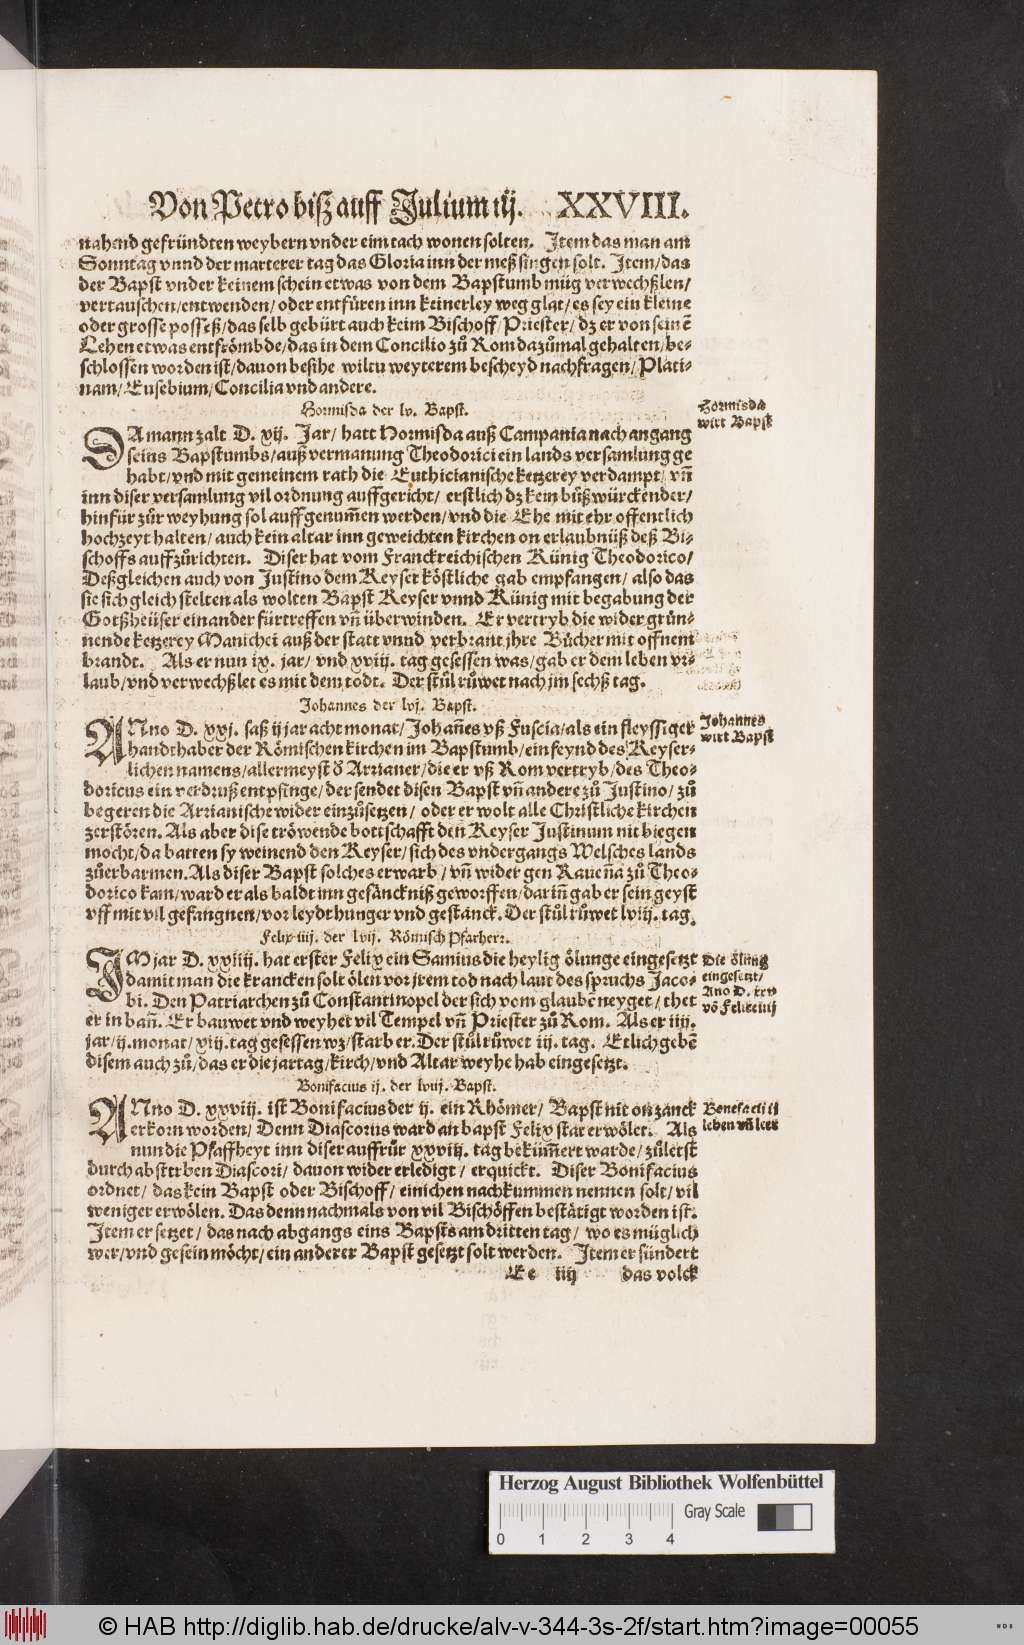 Von Petro biß auff Julium iij. XXVIII.
nahend gefründten weybern vnder eim tach wonen solten. Item das man am
Sonntag vnnd der marterer tag das Gloria inn der meß singen solt. Item/das
der Bapst vnder keinem schein etwas von dem Bapstumb müg verwechßlen/
vertauschen/entwenden/oder entfüren inn keinerley weg glat/es sey ein kleine
oder grosse posseß/das selb gebürt auch keim Bischoff/Priester/dz er von seinē
Lehen etwas entfrömbde/das in dem Concilio zů Rom dazůmal gehalten/be-
schlossen worden ist/dauon besihe wiltu weyterem bescheyd nachfragen/Plati-
nam/Eusebium/Concilia vnd andere.
Hormisda der lv. Bapst.
Hormisda
wirt Bapst
DA mann zalt D. xij. Jar/hatt Hormisda auß Campania nach angang
seins Bapstumbs/auß vermanung Theodorici ein lands versamlung ge
habt/vnd mit gemeinem rath die Euthicianische ketzerey verdampt/vn̄
inn diser versamlung vil ordnung auffgericht/ erstlich dz kein bůßwürckender/
hinfür zůr weyhung sol auffgenum̄en werden/vnd die Ehe mit ehr offentlich
hochzeyt halten/auch kein altar inn geweichten kirchen on erlaubnüß deß Bi-
schoffs auffzůrichten. Diser hat vom Franckreichischen Künig Theodorico/
Deßgleichen auch von Justino dem Keyser köstliche gab empfangen/also das
sie sich gleich stelten als wolten Bapst Keyser vnnd Künig mit begabung der
Gotßheüser einander fürtreffen vn̄ überwinden. Er vertryb die wider grůn-
nende ketzerey Manichei auß der statt vnnd verbrant jhre Bücher mit offnem
brandt. Als er nun ix. jar/ vnd xviij. tag gesessen was/gab er dem leben vr-
laub/vnd verwechßlet es mit dem todt. Der stůl růwet nach jm sechß tag.
Johannes der lvj. Bapst.
Johannes
wirt Bapst
ANno D. xxj. saß ij jar acht monat/Johan̄es vß Tuscia/als ein fleyssiger
handthaber der Römischen kirchen im Bapstumb/ein feynd des Keyser-
lichen namens/allermeyst d' Arrianer/die er vß Rom vertryb/des Theo-
doricus ein verdruß entpfinge/der sendet disen Bapst vn̄ andere zů Justino/zů
begeren die Arrianische wider einzůsetzen/ oder er wolt alle Christliche kirchen
zerstören. Als aber dise tröwende bottschafft den Keyser Justinum nit biegen
mocht/da batten sy weinend den Keyser/sich des vndergangs Welsches lands
zůerbarmen. Als diser Bapst solches erwarb/ vn̄ wider gen Rauen̄a zů Theo-
dorico kam/ward er als baldt inn gefänckniß geworffen/darin̄ gab er sein geyst
vff mit vil gefangnen/vor leydt hunger vnd gestanck. Der stůl růwet lviij. tag.
Felix iiij. der lvij. Römisch Pfarherr.
Die ölūng
eingesetzt/
Ano D. xxv
vō Felice iiij
IM jar D. xxiiij. hat erster Felix ein Samius die heylig ölunge eingesetzt
damit man die krancken solt ölen vor jrem tod nach laut des spruchs Jaco-
bi. Den Patriarchen zů Constantinopel der sich vom glaubē neyget/thet
er in ban̄. Er bauwet vnd weyhet vil Tempel vn̄ Priester zů Rom. Als er iiij.
jar/ij. monat/xiij. tag gesessen wz/starb er. Der stůl růwet iij. tag. Etlich gebē
disem auch zů/das er die jartag/kirch/vnd Altar weyhe hab eingesetzt.
Bonifacius ij. der lviij. Bapst.
Bonefacii ii
leben vn̄ leer
ANno D. xxviij. ist Bonifacius der ij. ein Rhömer/ Bapst nit on zanck
erkorn worden/Denn Diascorus ward an bapst Felix stat erwölet. Als
nun die Pfaffheyt inn diser auffrůr xxviij. tag bekům̄ert warde/zůletst
durch absterben Diascori/ dauon wider erledigt/ erquickt. Diser Bonifacius
ordnet/ das kein Bapst oder Bischoff/ einichen nachkummen nennen solt/vil
weniger erwölen. Das denn nachmals von vil Bischöffen bestätigt worden ist.
Item er setzet/ das nach abgangs eins Bapsts am dritten tag/ wo es müglich
wer/vnd gesein möcht/ein anderer Bapst gesetzt solt werden. Item er sündert
Ee iiij das volck
Herzog August Bibliothek Wolfenbüttel
Gray Scale
0 1 2 3 4
© HAB http://diglib.hab.de/drucke/alv-v-344-3s-2f/start.htm?image=00055